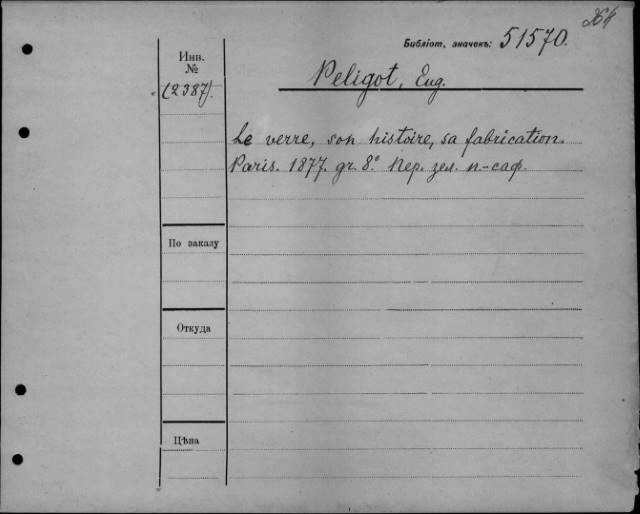 264
Библіот. значекъ: 51570.
Инв.
№
(2387).
Peligot, Eug.
Le verre, son histoire, sa fabrication.
Paris. 1877. gr. 8° Пер. зел. п.-саф.
По заказу
Откуда
Цѣна